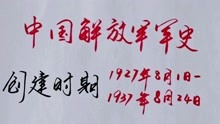 中国解放军军史
创建时期
1927年8月1日一
1937年8月24日